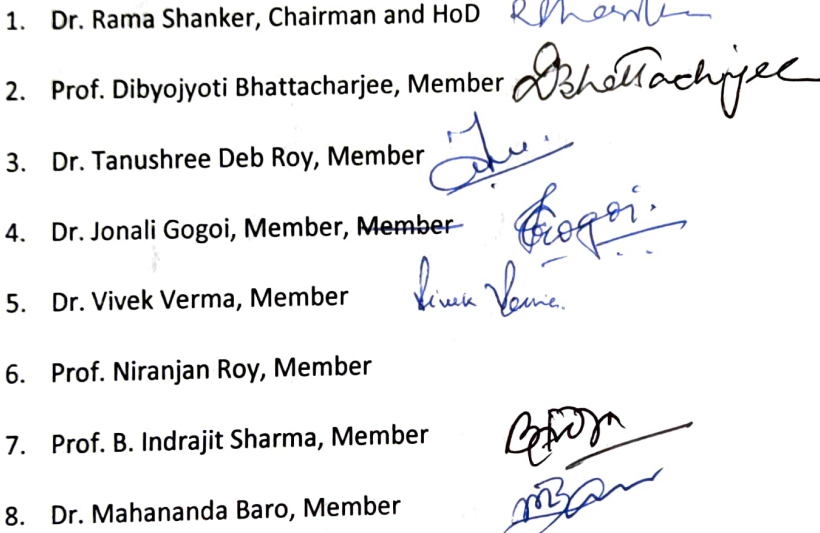 1. Dr. Rama Shanker, Chairman and HoD
2. Prof. Dibyojyoti Bhattacharjee, Member DBhattacharjee
3. Dr. Tanushree Deb Roy, Member
4. Dr. Jonali Gogoi, Member, Member Gogoi.
5. Dr. Vivek Verma, Member Vivek Verma.
6. Prof. Niranjan Roy, Member
7. Prof. B. Indrajit Sharma, Member
8. Dr. Mahananda Baro, Member